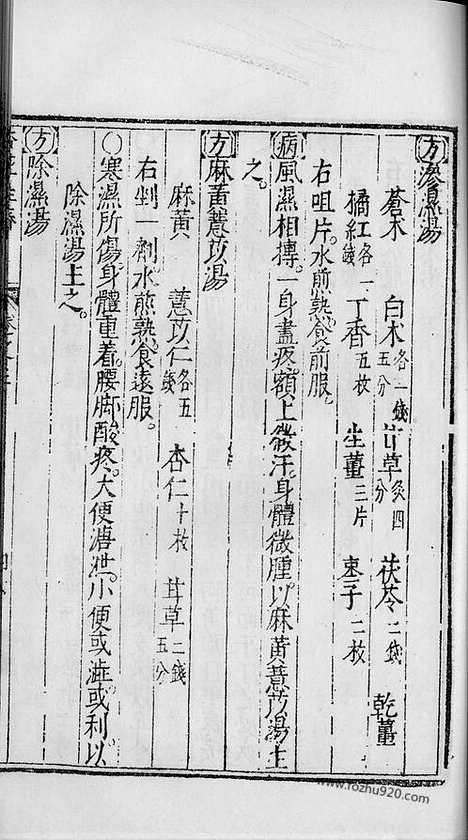 方滲濕湯
蒼术 白术各一錢五分 甘草灸四分 茯苓二錢 乾薑
橘紅各一錢 丁香五枚 生薑三片 棗子二枚
右咀片水煎熟食前服
病風濕相摶一身盡疼額上微汗身體微腫以麻黃薏苡湯主
之
方麻黃薏苡湯
麻黃 薏苡仁各五錢 杏仁十枚 甘草二錢五分
右剉一劑水煎熟食遠服
〇寒濕所傷身體重着腰脚酸疼大便溏泄小便或澁或利以
除濕湯主之
方除濕湯
www.fozhu920.com